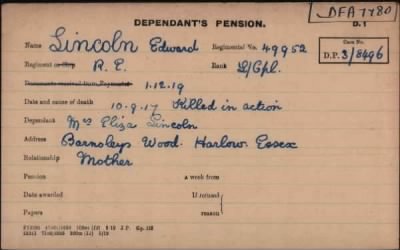 DFA 7780
DEPENDANT'S PENSION. D.1
Name Lincoln Edward Regimental No. 49952 Case No.
Regiment or Corp R.E. Rank L/Cpl. D.P. 3/8496
Documents received from Regimental 1.12.19
Date and cause of death 10-9-17 Killed in action
Dependant Mrs Eliza Lincoln
Address Barnsleys Wood. Harlow. Essex
Relationship Mother
Pension a week from
Date awarded If refused
Papers reason